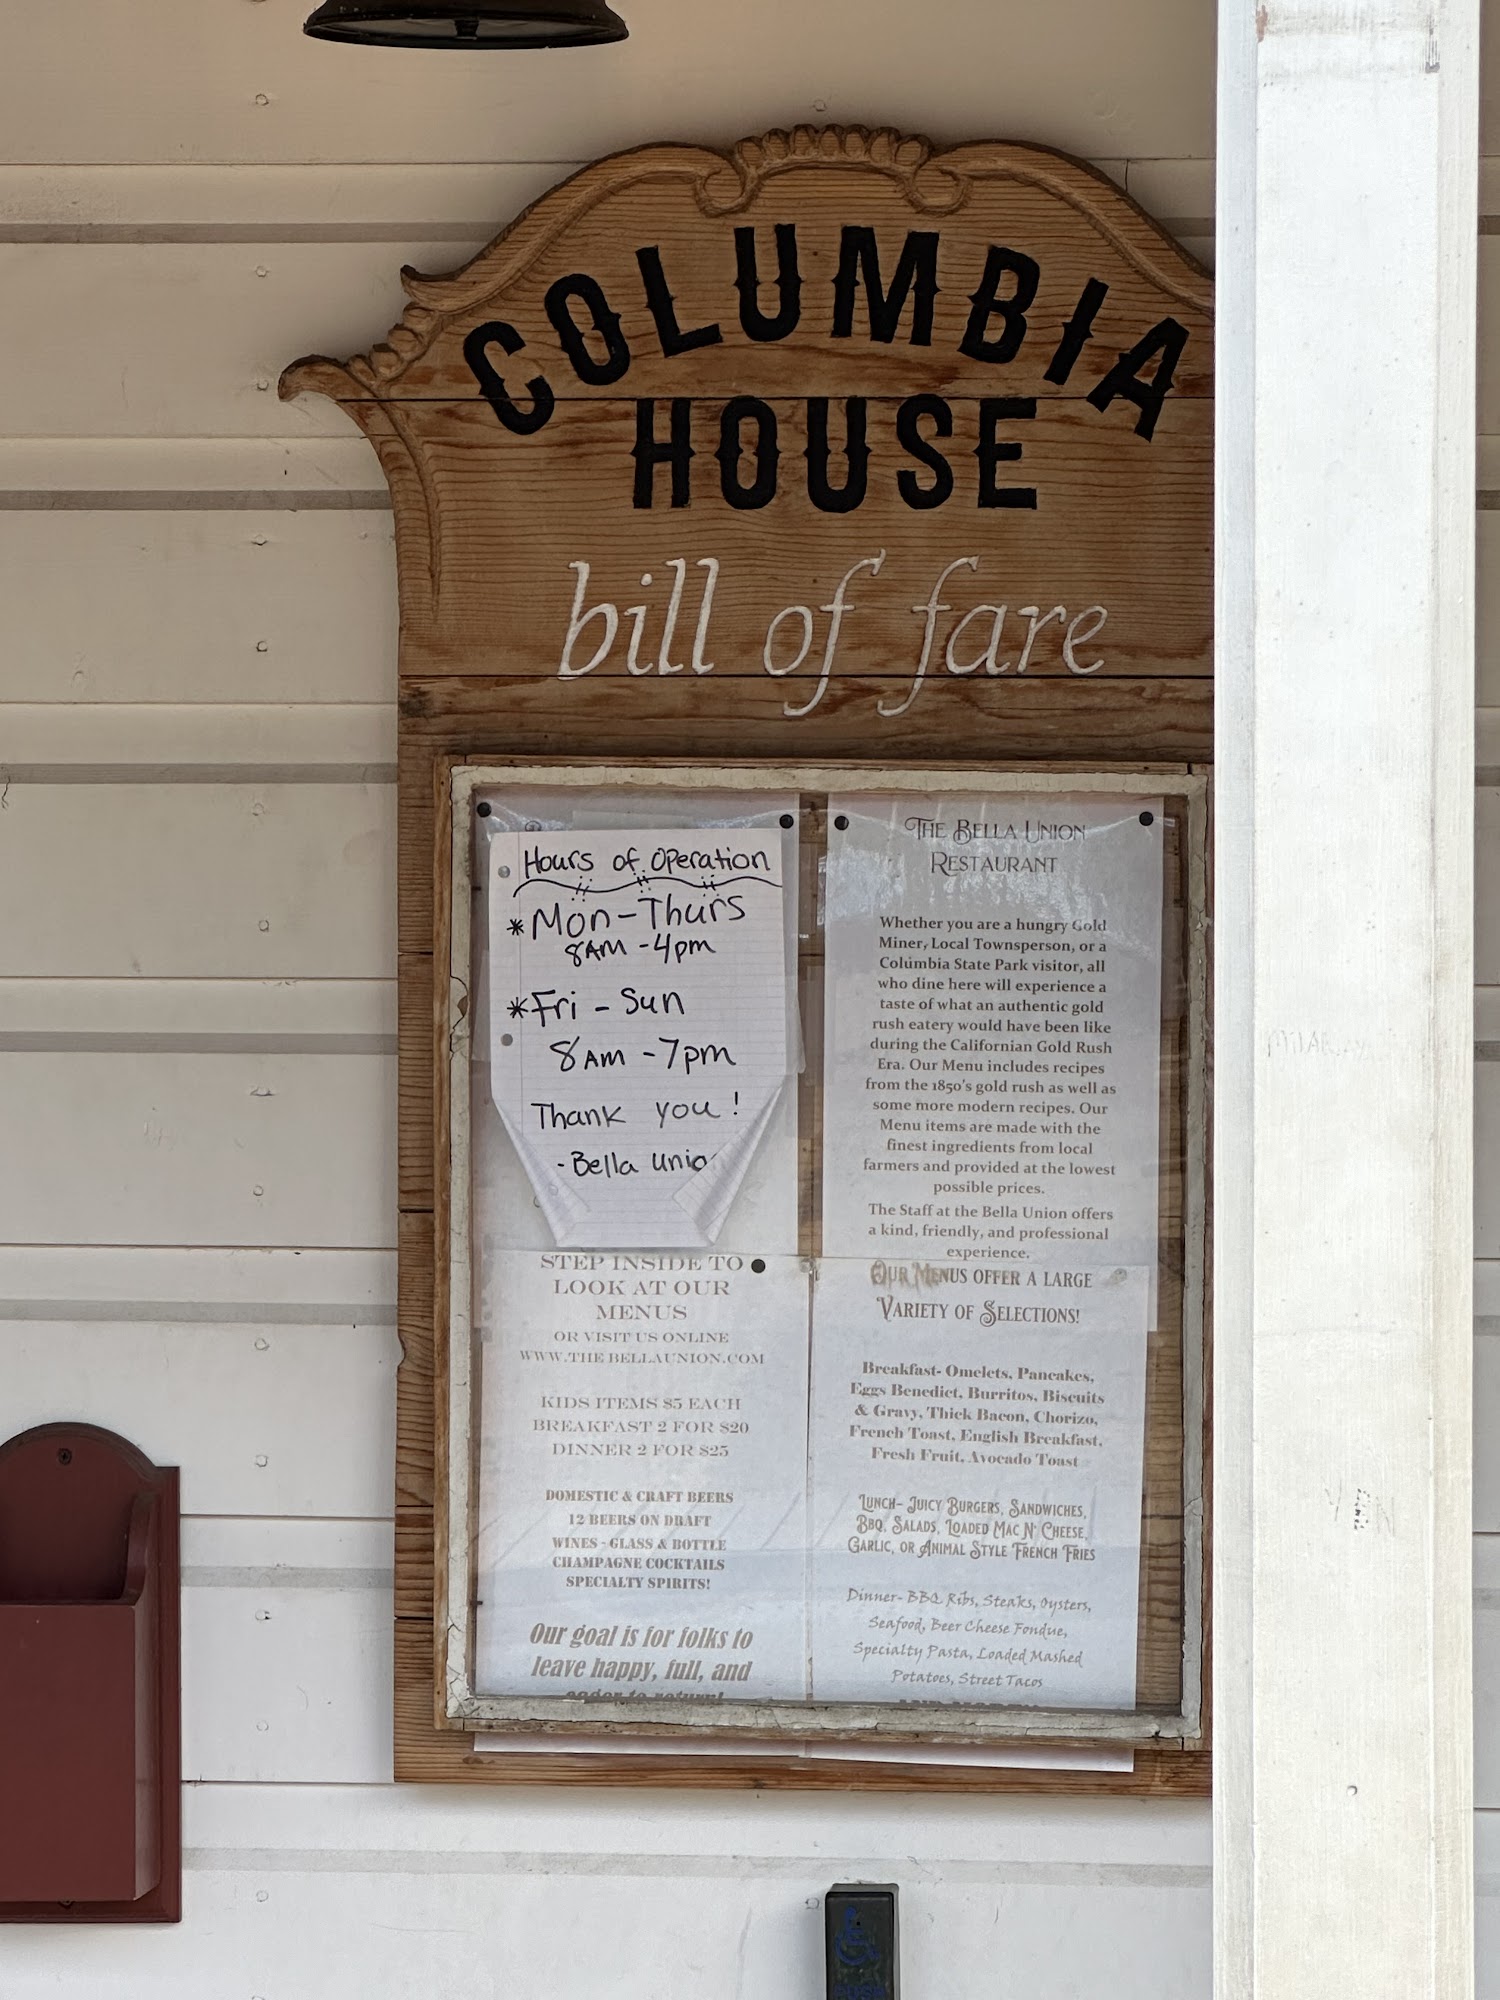 COLUMBIA
HOUSE
bill of fare
Hours of Operation
*Mon-Thurs
8AM-4pm
*Fri-Sun
8AM-7pm
Thank you!
-Bella Unio
STEP INSIDE TO
LOOK AT OUR
MENUS
OR VISIT US ONLINE
WWW.THEBELLAUNION.COM
KIDS ITEMS $5 EACH
BREAKFAST 2 FOR $20
DINNER 2 FOR $25
DOMESTIC & CRAFT BEERS
12 BEERS ON DRAFT
WINES - GLASS & BOTTLE
CHAMPAGNE COCKTAILS
SPECIALTY SPIRITS!
Our goal is for folks to
leave happy, full, and
eager to return!
THE BELLA UNION
RESTAURANT
Whether you are a hungry Gold
Miner, Local Townsperson, or a
Columbia State Park visitor, all
who dine here will experience a
taste of what an authentic gold
rush eatery would have been like
during the Californian Gold Rush
Era. Our Menu includes recipes
from the 1850's gold rush as well as
some more modern recipes. Our
Menu items are made with the
finest ingredients from local
farmers and provided at the lowest
possible prices.
The Staff at the Bella Union offers
a kind, friendly, and professional
experience.
OUR MENUS OFFER A LARGE
VARIETY OF SELECTIONS!
Breakfast- Omelets, Pancakes,
Eggs Benedict, Burritos, Biscuits
& Gravy, Thick Bacon, Chorizo,
French Toast, English Breakfast,
Fresh Fruit, Avocado Toast
LUNCH- JUICY BURGERS, SANDWICHES,
BBQ, SALADS, LOADED MAC N' CHEESE,
GARLIC, OR ANIMAL STYLE FRENCH FRIES
Dinner- BBQ Ribs, Steaks, Oysters,
Seafood, Beer Cheese Fondue,
Specialty Pasta, Loaded Mashed
Potatoes, Street Tacos
AND MORE!
PUSH